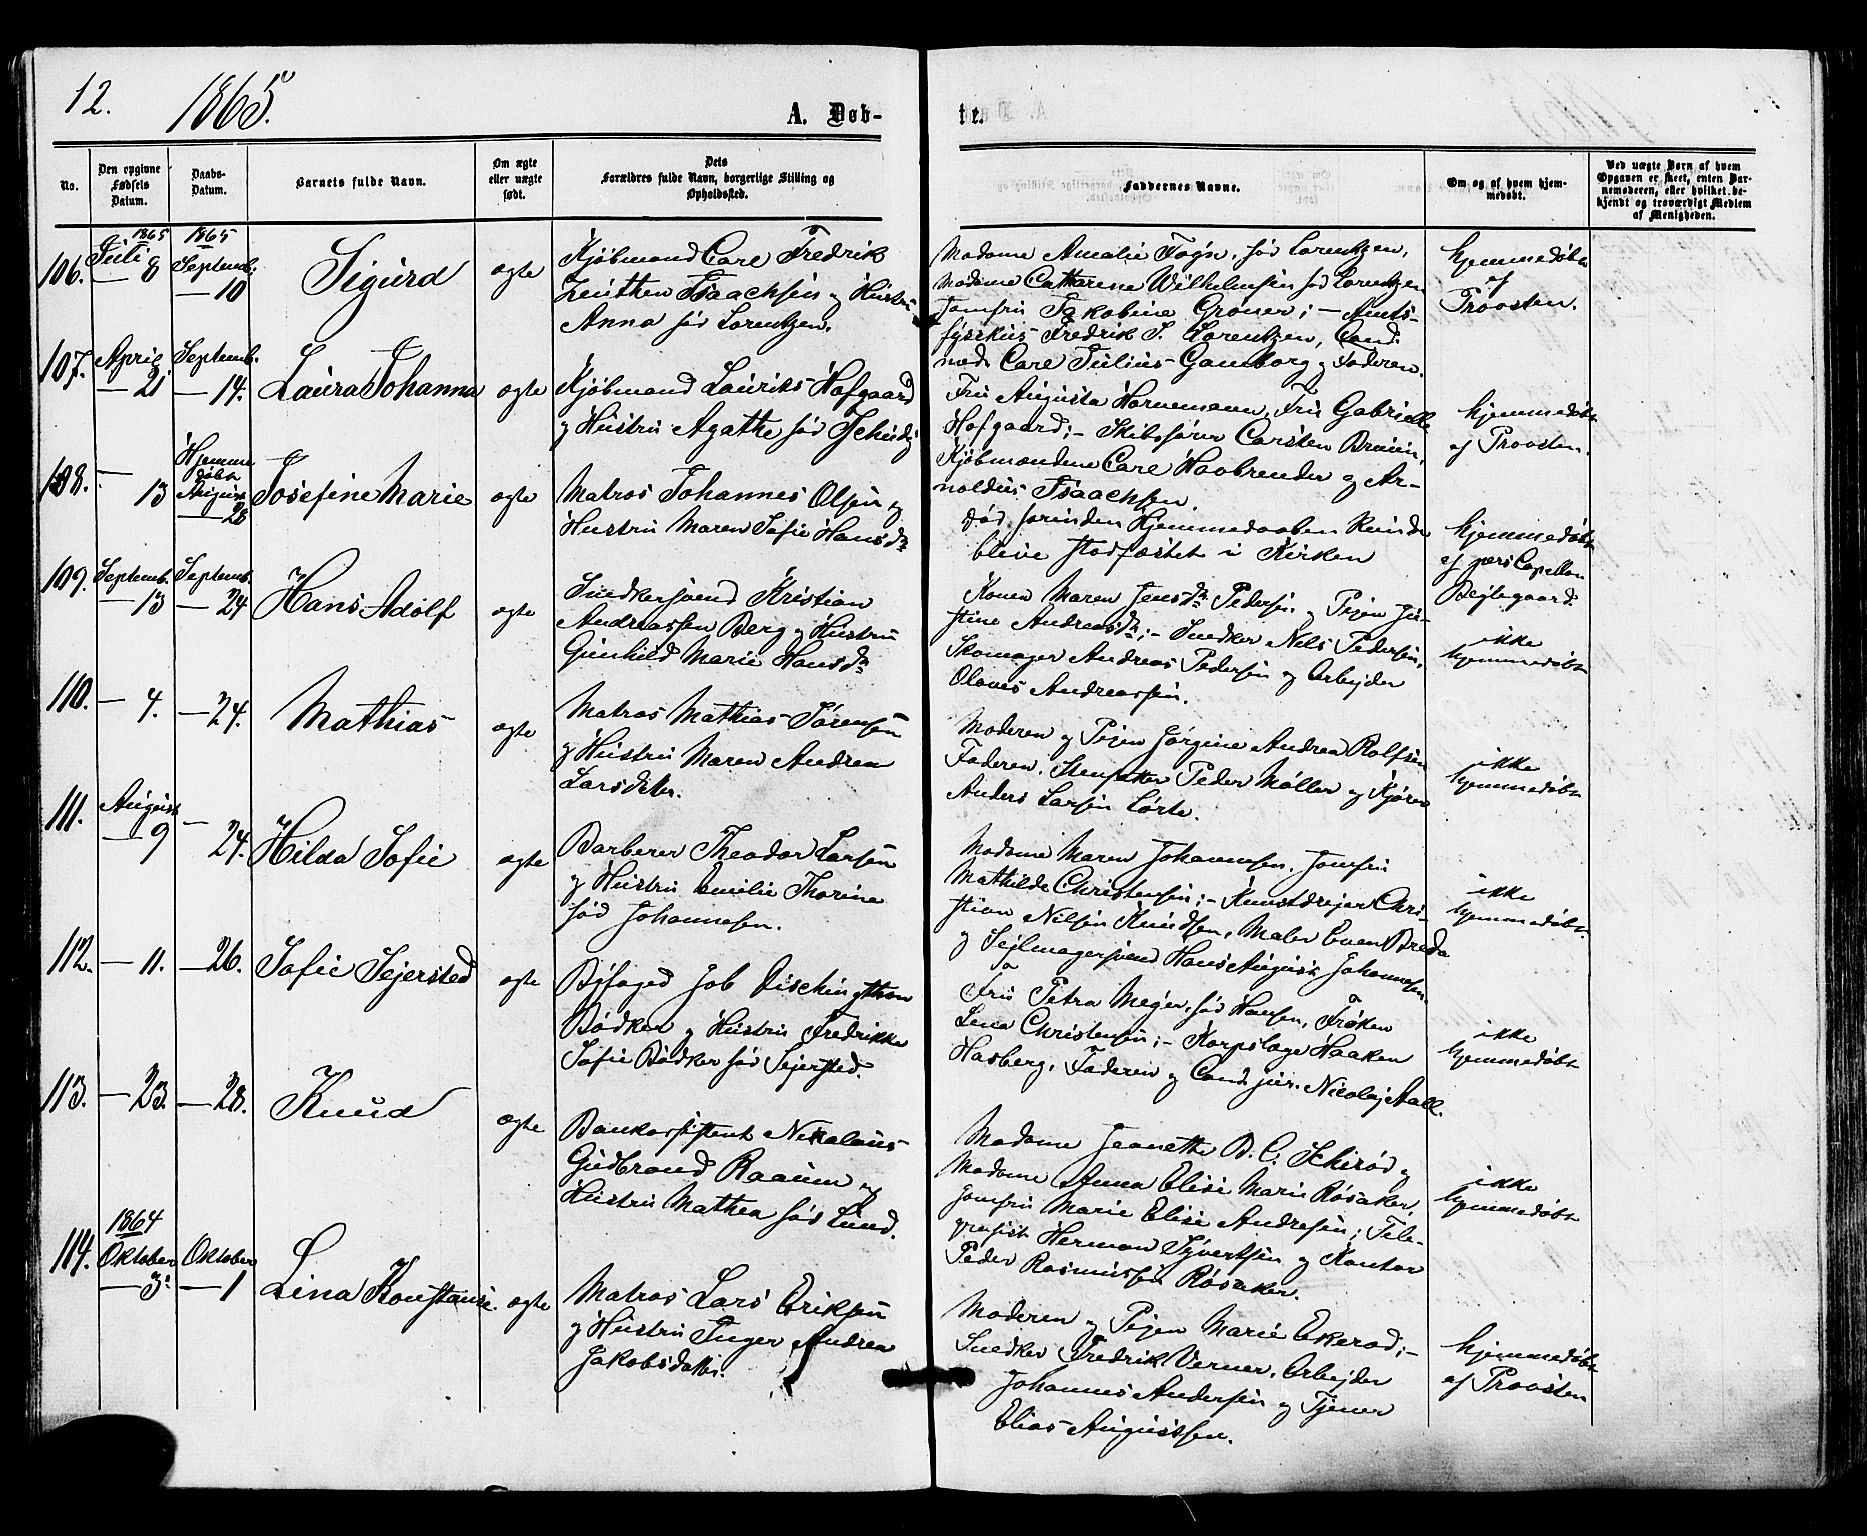 12. 1865.
A. Døb-
te.
No.
Den opgivne
Fødsels
Datum.
Daabs-
Datum.
Barnets fulde Navn.
Om ægte
eller uægte
født.
Dets
Forældres fulde Navn, borgerlige Stilling og
Opholdssted.
Faddernes Navne.
Om og af hvem hjem-
medøbt.
Ved uægte Barn af hvem
Opgaven er skeet, enten Bar-
nemoderen, eller hvilket be-
kjendt og troværdigt Medlem
af Menigheden.
106.
1865
Juli
— 8
1865
Septemb.
— 10
Sigurd
ægte
Kjøbmand Carl Fredrik
Zeuthen Isaachsen og Hustru
Anna fød Lorentzen.
Madame Amalie Fogn, fød Lorentzen,
Madame Catharine Wilhelmsen fød Lorentzen
Jomfru Jakobine Groner; — Amts-
fysikus Fredrik S. Lorentzen, Cand.
med. Carl Julius Gamborg og Faderen.
hjemmedøbt
af
Provsten.
107.
April
— 21
Septemb.
— 14.
Laura Johanna
ægte
Kjøbmand Laurits Hofgaard
og Hustru Agathe fød
Fru Augusta Hornemann, Fru Gabrielle
Hofgaard; — Skibsfører Carsten Bruun,
Kjøbmændene Carl Havbrender og Ar-
noldus Isaachsen.
hjemmedøbt
af Provsten.
108.
— 13
Hjemme
døbt
August
— 28
Josefine Marie
ægte
Matros Johannes Olsen og
Hustru Maren Sofie Hansdr
Død, forinden Hjemmedaaben kunde
blive stadfæstet i Kirken
hjemmedøbt
af pers Capellan
Bejlegaard.
109.
Septemb.
— 13
Septemb.
— 24
Hans Adolf
ægte
Snedkersvend Kristian
Andreassen Berg og Hustru
Gunhild Marie Hansdr
Konen Maren Jensdr Pedersen og Pigen Ju-
stine Andreasdr; — Snedker Nils Pedersen,
Skomager Andreas Pedersen og Arbejder
Olaves Andreassen.
ikke
hjemmedøbt
110.
— 4.
— 24.
Mathias
ægte
Matros Mathias Sørensen
og Hustru Maren Andrea
Larsdatter.
Moderen og Pigen Jørgine Andrea Rolfsen
Faderen, Peder Møller og
Anders Larsen Lørte.
ikke
hjemmedøbt
111.
August
— 9
— 24.
Hilda Sofie
ægte
Barberer Theodor Larsen
og Hustru Emilie Thorine
fød Johannesen.
Madame Maren Johannesen, Jomfru
Mathilde Christensen; — Kunstdrejer Chri-
stian Nilsen Knudsen, Maler Even Breda
og Sejlmagersvend Hans August Johannesen.
ikke
hjemmedøbt.
112.
— 11.
— 26.
Sofie Sejersted
ægte
Byfoged Job Dischington
Bødker og Hustru Fredrikke
Sofie Bødker fød Sejersted.
Fru Petra Mejer, fød Hansen, Frøken
Lena Christensen; — Korpslæge Haaken
Hasberg, Faderen og Cand. jur. Nicolaj Aall.
ikke
hjemmedøbt
113.
— 23.
— 28.
Knud
ægte
Bankassistent Nikolaus
Gudbrand Raaum og
Hustru Mathea fød Lund.
Madame Jeanette B. C. Schirød og
Madame Anna Elise Marie Rosaker,
Jomfru Marie Elise Andresen; Tele-
grafist Herman Syvertsen og Kantor
Peder Rasmussen Rosaker.
ikke
hjemmedøbt
114.
1864
Oktober
— 3.
Oktober
— 1
Lina Konstanse.
ægte
Matros Lars Eriksen
og Hustru Inger Andrea
Jakobsdatter.
Moderen og Pigen Marie Ekerod; —
Snedker Fredrik Verner, Arbejder
Johannes Andersen og Tjener
Elias Augustsen.
hjemmedøbt
af Provsten